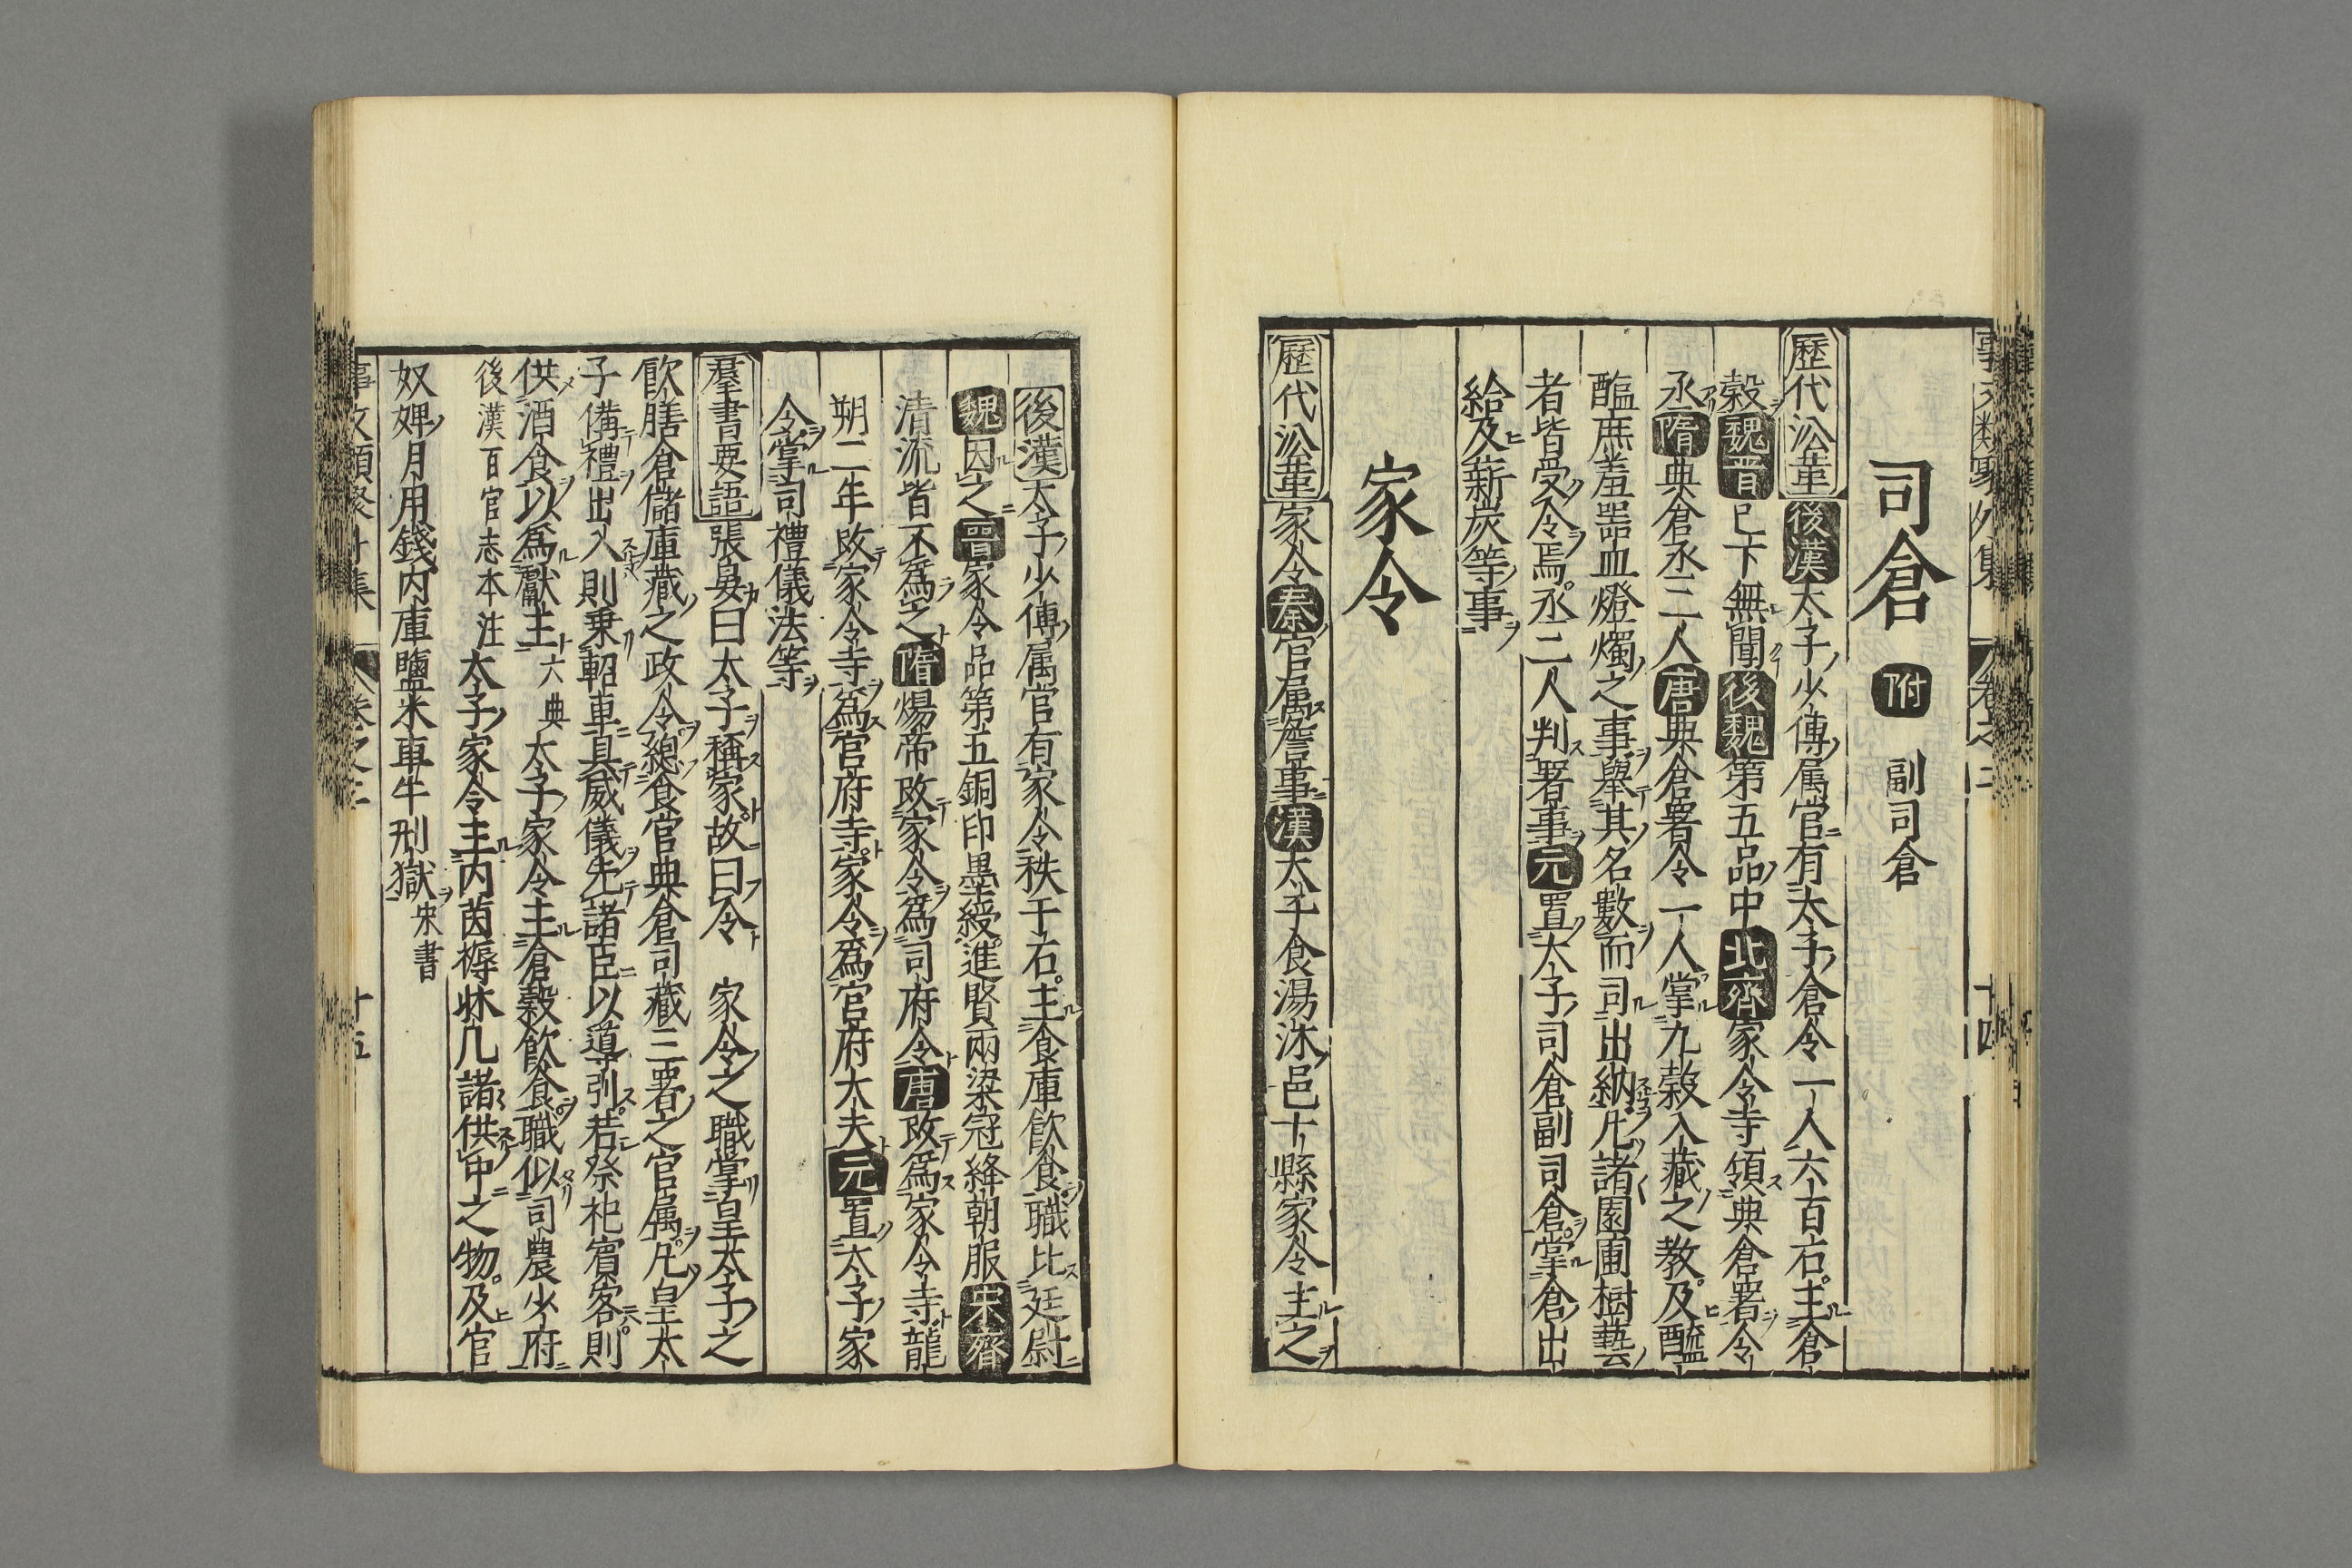 司倉 附 副司倉
歷代沿革 後漢太子少傅属官有太子倉令一人六百石主倉
穀魏晋已下無聞後魏第五品中北齊家令寺領典倉署令
丞隋典倉丞二人唐典倉署令一人掌九穀入藏之教及醯
醢庶羞器皿燈燭之事舉其名數而司出納凡諸園圃樹藝
者皆受令焉丞二人判署事元置太子司倉副司倉掌倉出
給及薪炭等事
家令
歷代沿革 家令秦官属詹事漢太子食湯沐邑十縣家令主之
後漢太子少傅属官有家令秩千石主食庫飲食職比廷尉
魏因之晋家令品第五銅印墨綬進賢兩梁冠絳朝服宋齊
清流皆不爲之隋煬帝改家令爲司府令唐改爲家令寺龍
朔二年改家令寺爲官府寺家令爲官府大夫元置太子家
令掌司禮儀法等
羣書要語 張晏曰太子稱家故曰令 家令之職掌皇太子之
飮膳倉儲庫藏之政令總食官典倉司藏三署之官属凡皇太
子備禮出入則乗軺車具威儀先諸臣以導引若祭祀賓客則
供酒食以爲獻主六典 太子家令主倉穀飲食職似司農少府
後漢百官志本注 太子家令主内茵褥牀几諸供中之物及官
奴婢月用錢内庫鹽米車牛刑獄宋書